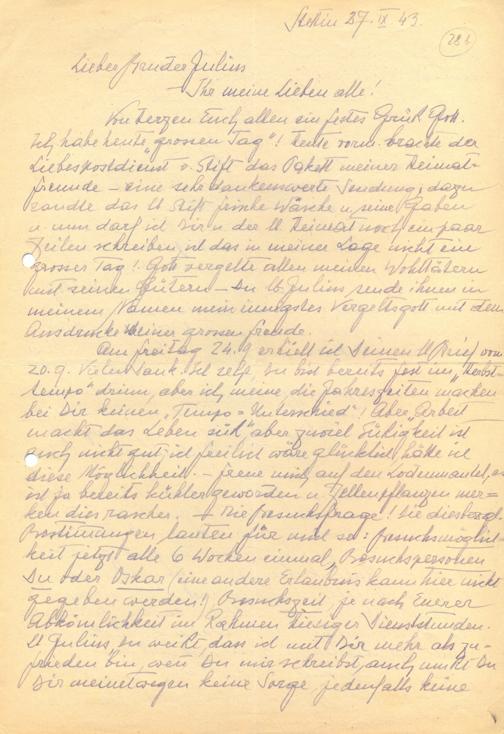 Stettin 27.IX.43.
281
Lieber Bruder Julius
Ihr meine Lieben alle!
Von Herzen Euch allen ein festes Grüß Gott.
Ich habe heute "grossen Tag"! Heute vorm. brachte der
Liebespostdienst v. Stift das Paket meiner Heimat-
freunde – eine sehr dankenswerte Sendung; dazu
sandte das lb Stift frische Wäsche u. seine Gaben
u. nun darf ich Dir u. der lb Heimat noch ein paar
Zeilen schreiben, ist das in meiner Lage nicht ein
grosser Tag! Gott vergelte allen meinen Wohltätern
mit seinen Gütern – Du lb Julius, sende ihnen in
meinem Namen mein innigstes Vergeltsgott mit dem
Ausdrucke meiner grossen Freude.
Am Freitag 24.9 erhielt ich Deinen lb Brief vom
20.9. Vielen Dank. Ich sehe, Du bist bereits fest im "Herbst-
tempo" drinn, aber ich meine, die Jahreszeiten machen
bei Dir keinen "Tempo-Unterschied". Aber "Arbeit
macht das Leben süß" aber zuviel Süßigkeit ist
auch nicht gut; ich freilich wäre glücklich, hätte ich
diese Möglichkeit. – freue mich auf den Lodenmantel, es
ist ja bereits kühler geworden u. Zellenpflanzen mer-
ken dies rascher. – Die Besuchsfrage! Die diesbezgl.
Bestimmungen lauten für uns so: Besuchsmöglich-
keit jetzt alle 6 Wochen einmal, Besuchspersonen
Du oder Oskar (eine andere Erlaubnis kann hier nicht
gegeben werden!) Besuchszeit je nach Eurer
Abkömlichkeit im Rahmen hiesiger Dienststunden.
lb Julius, Du weißt dass ich mit Dir mehr als zu-
frieden bin, wenn Du mir schreibst, auch mußt Du
Dir meinetwegen keine Sorge, jedenfalls keine